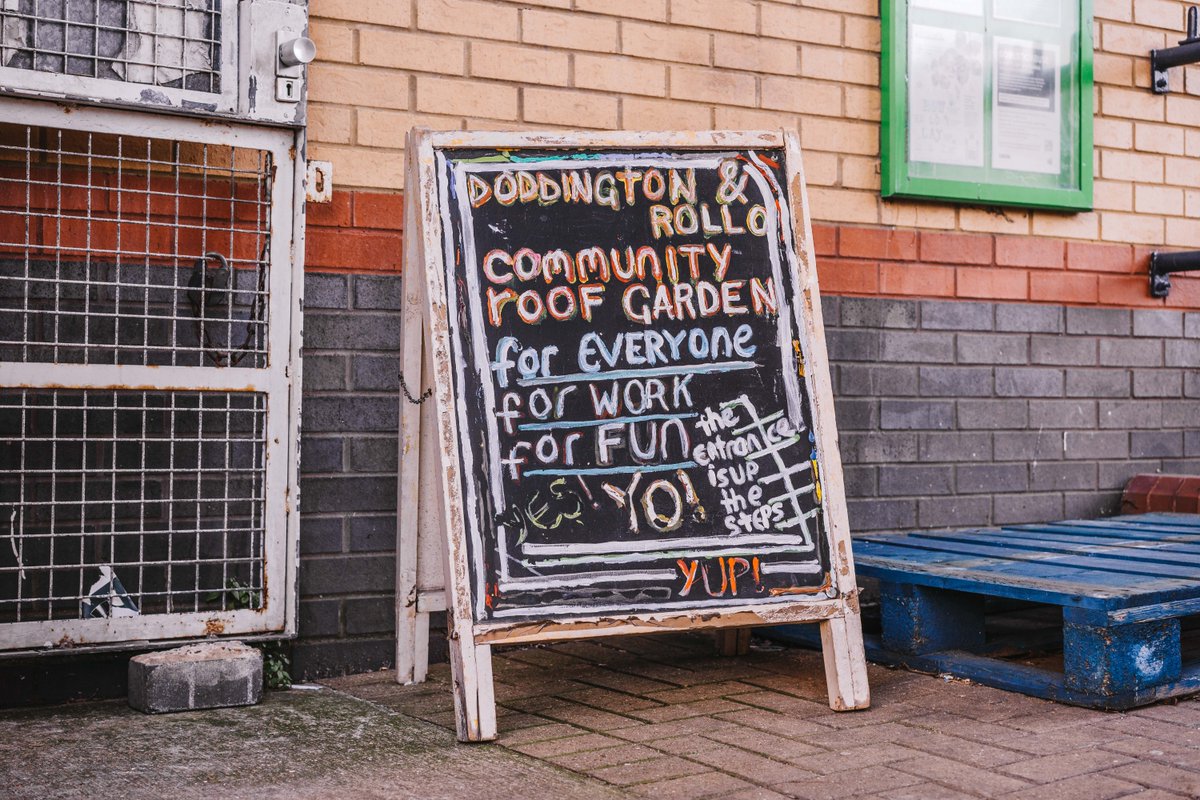 DODDINGTON &
ROLLO
COMMUNITY
ROOF GARDEN
for EVERYONE
for WORK
for FUN
the
ENTRANCE
is UP
the
STEPS
YES! YO!
YUP!